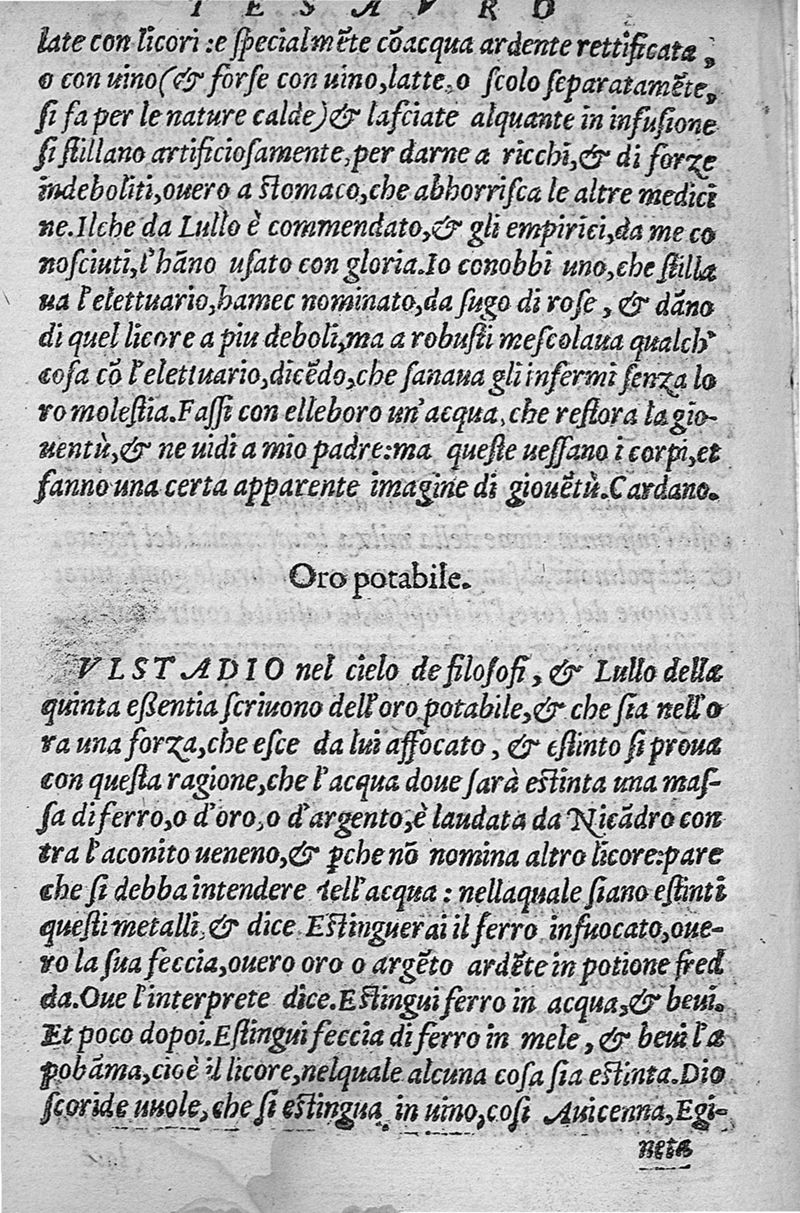 TESAVRO
late con licori : e ſpecialmẽte cõacqua ardente rettificata,
o con uino (& forſe con uino, latte, o ſcolo ſeparatamẽte,
ſi fa per le nature calde) & laſciate alquante in infuſione
ſi ſtillano artificioſamente, per darne a ricchi, & di forze
indeboliti, ouero a ſtomaco, che abhorriſca le altre medici
ne. Ilche da Lullo è commendato, & gli empirici, da me co
noſciuti, l'hãno uſato con gloria. Io conobbi uno, che ſtilla
ua l'elettuario, hamec nominato, da ſugo di roſe, & dãno
di quel licore a piu deboli, ma a robuſti meſcolaua qualch'
coſa cõ l'elettuario, dicẽdo, che ſanaua gli infermi ſenza lo
ro moleſtia. Faſſi con elleboro un'acqua, che reſtora la gio-
uentù, & ne uidi a mio padre: ma queſte ueſſano i corpi, et
fanno una certa apparente imagine di giouẽtù. Cardano.
Oro potabile.
VLSTADIO nel cielo de filoſofi, & Lullo della
quinta eſſentia ſcriuono dell'oro potabile, & che ſia nell'o
ro una forza, che eſce da lui affocato, & eſtinto ſi proua
con queſta ragione, che l'acqua doue ſarà eſtinta una maſ-
ſa di ferro, o d'oro, o d'argento, è laudata da Nicãdro con
tra l'aconito ueneno, & ꝑche nõ nomina altro licore: pare
che ſi debba intendere dell'acqua : nellaquale ſiano eſtinti
queſti metalli, & dice. Eſtinguerai il ferro infuocato, oue-
ro la ſua feccia, ouero oro o argẽto ardẽte in potione fred
da. Oue l'interprete dice. Eſtingui ferro in acqua, & beui.
Et poco dopoi. Eſtingui feccia di ferro in mele, & beui l'a
pobãma, cioè il licore, nelquale alcuna coſa ſia eſtinta. Dio
ſcoride uuole, che ſi eſtingua in uino, coſi Auicenna, Egi-
neta